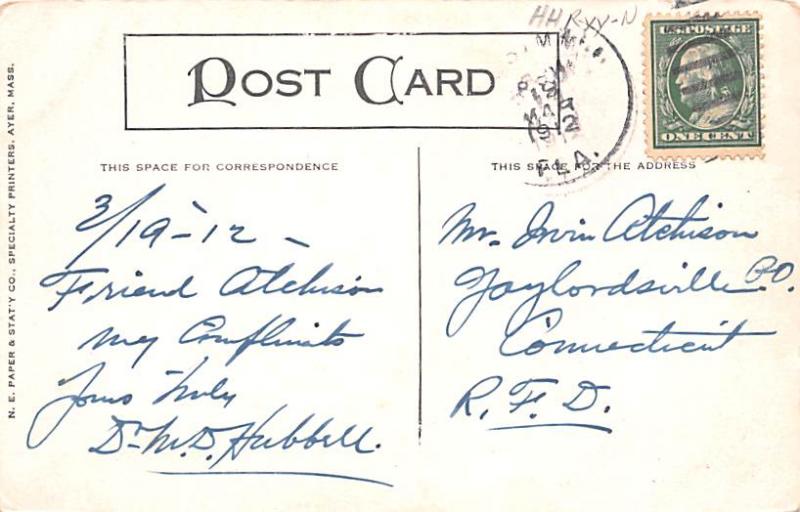 HHR-XV-N
POST CARD
MAR
1912
FLA.
U.S. POSTAGE
ONE CENT
THIS SPACE FOR CORRESPONDENCE
THIS SPACE FOR THE ADDRESS
3/19-12 -
Friend Atchison
My Compliments
Yours Truly
Dr. M. D. Hubbell.
Mr. Irvin Atchison
Gaylordsville P.O.
Connecticut
R. F. D.
N. E. PAPER & STAT'Y CO., SPECIALTY PRINTERS, AYER, MASS.